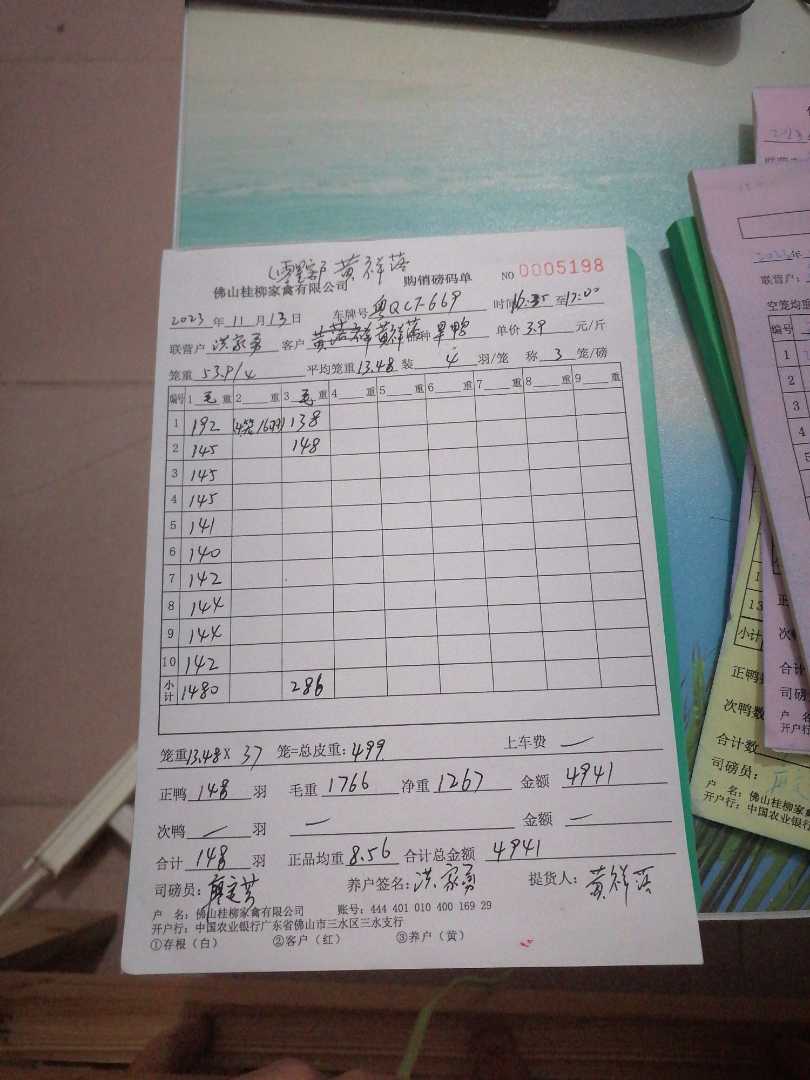 黄祥落
佛山桂柳家禽有限公司 购销磅码单 NO 0005198
2023年11月13日 车牌号 粤QC7-669 时间16:35至17:00
联营户 洪家勇 客户 黄落祥 黄祥落 种 旱鸭 单价 3.9 元/斤
笼重 53.9/4 平均笼重13.48 装 4 羽/笼 称 3 笼/磅
编号 1 毛 重 2 重 3 毛 重 4 重 5 重 6 重 7 重 8 重 9 重
1 192 (4笼16羽) 138
2 145 148
3 145
4 145
5 141
6 140
7 142
8 144
9 144
10 142
小计 1480 286
笼重13.48× 37 笼=总皮重:499 上车费 —
正鸭 148 羽 毛重 1766 净重 1267 金额 4941
次鸭 — 羽 — 金额 —
合计 148 羽 正品均重 8.56 合计总金额 4941
司磅员: 养户签名: 洪家勇 提货人: 黄祥落
户 名: 佛山桂柳家禽有限公司 账号: 444 401 010 400 169 29
开户行: 中国农业银行广东省佛山市三水区三水支行
①存根（白） ②客户（红） ③养户（黄）
2023年
联营户:
空笼均重
编号
1
2
3
4
13
小计
正鸭
次鸭数
合计数
司磅员:
户 名: 佛山桂柳家禽
开户行: 中国农业银行
合计
司磅
户 名
开户行